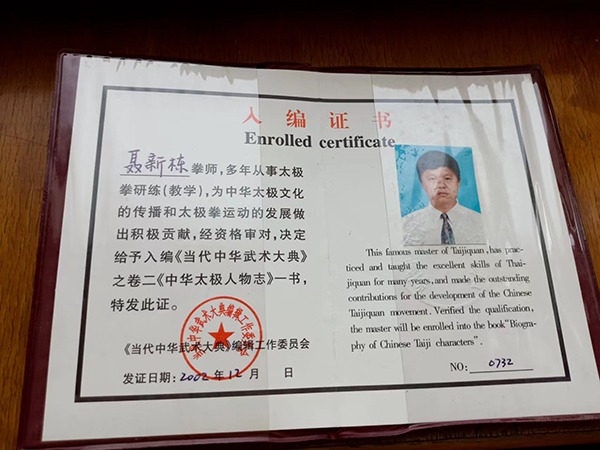 入编证书
Enrolled certificate
聂新栋 拳师,多年从事太极
拳研练(教学),为中华太极文化
的传播和太极拳运动的发展做
出积极贡献,经资格审对,决定
给予入编《当代中华武术大典》
之卷二《中华太极人物志》一书,
特发此证。
《当代中华武术大典》编辑工作委员会
发证日期:2002年12月 日
当代中华武术大典编辑工作委员会
This famous master of Taijiquan, has prac-
ticed and taught the excellent skills of Thai-
jiquan for many years, and made the outstanding
contributions for the development of the Chinese
Taijiquan movement. Verified the qualification,
the master will be enrolled into the book"Biogra-
phy of Chinese Taiji characters".
NO: 0732